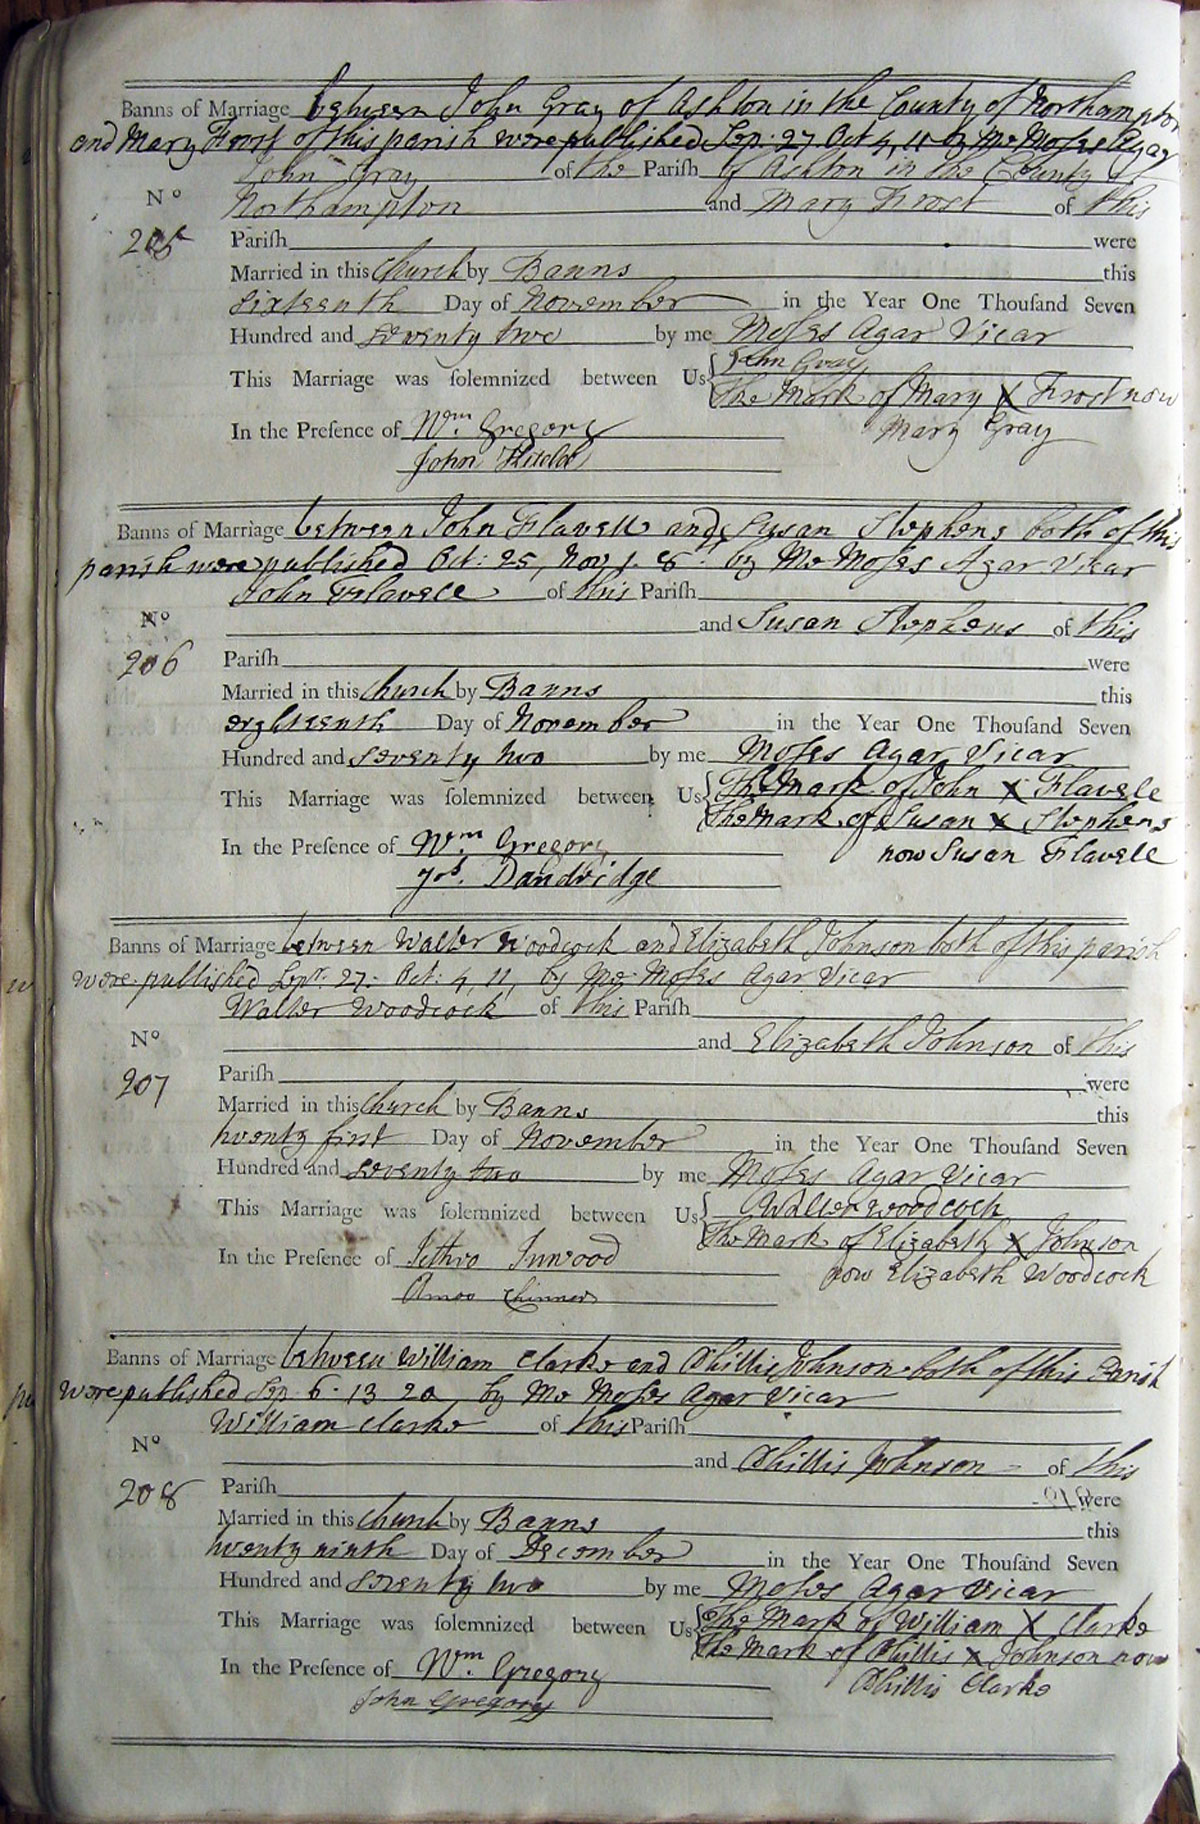 Banns of Marriage between John Gray of Ashton in the County of Northampton
and Mary Frost of this parish were published Sep. 27 Oct 4, 11 by me Moſes Agar
John Gray of the Pariſh of Ashton in the County of
No Northampton and Mary Frost of this
205 Pariſh were
Married in this Church by Banns this
sixteenth Day of November in the Year One Thouſand Seven
Hundred and seventy two by me Moſes Agar Vicar
This Marriage was ſolemnized between Us John Gray
The Mark of Mary X Frost now
Mary Gray
In the Preſence of Wm. Gregory
John
Banns of Marriage between John Flavell and Susan Stephens both of this
parish were published Oct: 25, Nov. 1. 8th by Me Moſes Agar Vicar
John Flavell of this Pariſh
No and Susan Stephens of this
206 Pariſh were
Married in this Church by Banns this
eighteenth Day of November in the Year One Thouſand Seven
Hundred and seventy two by me Moſes Agar Vicar
This Marriage was ſolemnized between Us The Mark of John X Flavell
The Mark of Susan X Stephens
now Susan Flavell
In the Preſence of Wm. Gregory
Jos. Dandridge
Banns of Marriage between Walter Woodcock and Elizabeth Johnson both of this parish
were published Sepr. 27: Oct: 4, 11, by Me Moſes Agar Vicar
Walter Woodcock of this Pariſh
No and Elizabeth Johnson of this
207 Pariſh were
Married in this Church by Banns this
twenty first Day of November in the Year One Thouſand Seven
Hundred and seventy two by me Moſes Agar Vicar
This Marriage was ſolemnized between Us Walter Woodcock
The Mark of Elizabeth X Johnson
now Elizabeth Woodcock
In the Preſence of Jethro Inwood
Amos Chinner
Banns of Marriage between William Clarke and Phillis Johnson both of this Parish
were published Sep. 6. 13 20 by Me Moſes Agar Vicar
William Clarke of this Pariſh
No and Phillis Johnson of this
208 Pariſh were
Married in this Church by Banns this
twenty ninth Day of December in the Year One Thouſand Seven
Hundred and seventy two by me Moſes Agar Vicar
This Marriage was ſolemnized between Us The Mark of William X Clarke
The Mark of Phillis X Johnson now
Phillis Clarke
In the Preſence of Wm. Gregory
John Gregory